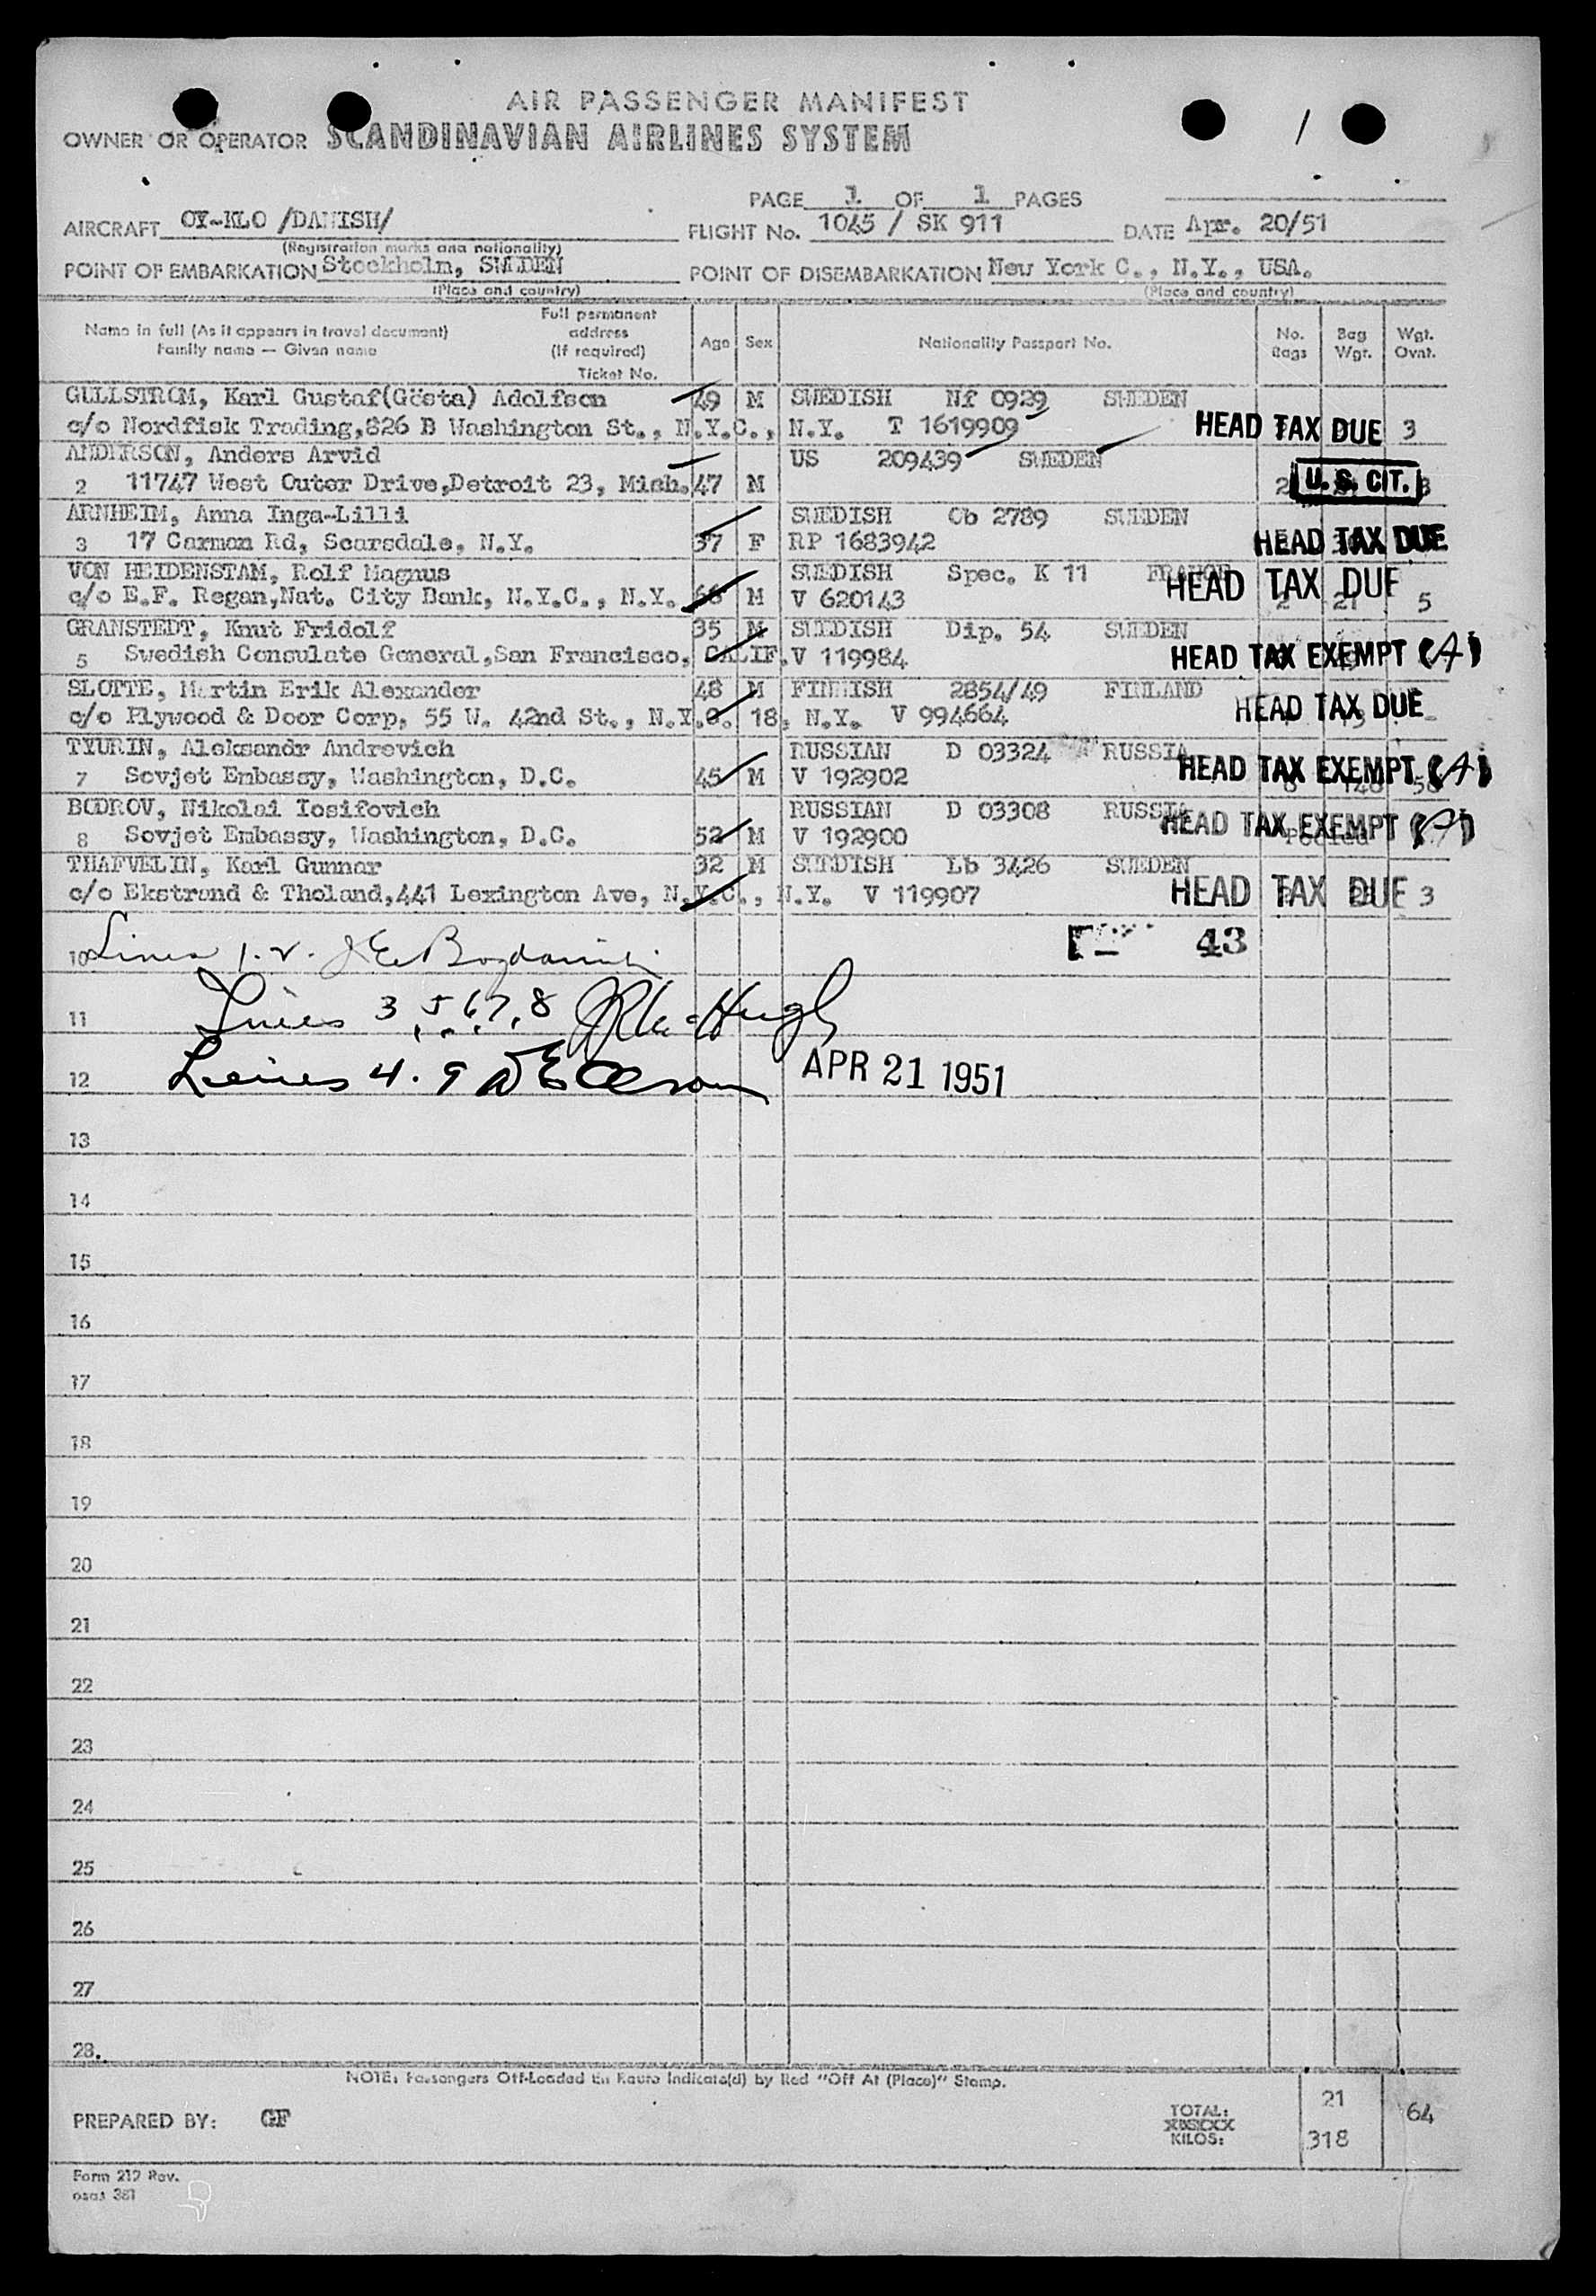 AIR PASSENGER MANIFEST
OWNER OR OPERATOR SCANDINAVIAN AIRLINES SYSTEM
PAGE 1 OF 1 PAGES
AIRCRAFT OY-KLO /DANISH/ FLIGHT No. 1045 / SK 911 DATE Apr. 20/51
(Registration marks and nationality)
POINT OF EMBARKATION Stockholm, SWEDEN POINT OF DISEMBARKATION New York C., N.Y., USA.
(Place and country) (Place and country)
Name in full (As it appears in travel document) Family name — Given name Full permanent address (If required) Ticket No. Age Sex Nationality Passport No. No. Bags Bag Wgt. Wgt. Ovnt.
GULLSTROM, Karl Gustaf(Gösta) Adolfson 49 M SWEDISH Nf 0929 SWEDEN
c/o Nordfisk Trading,826 B Washington St., N.Y.C., N.Y. T 1619909 HEAD TAX DUE 3
ANDERSON, Anders Arvid US 209439 SWEDEN
2 11747 West Outer Drive,Detroit 23, Mich. 47 M 2 U. S. CIT. 3
ARNHEIM, Anna Inga-Lilli SWEDISH Ob 2789 SWEDEN
3 17 Carman Rd, Scarsdale, N.Y. 37 F RP 1683942 HEAD TAX DUE
VON HEIDENSTAM, Rolf Magnus SWEDISH Spec. K 11 FRANCE
c/o E.F. Regan,Nat. City Bank, N.Y.C., N.Y. 66 M V 620143 HEAD TAX DUE 2 21 5
GRANSTEDT, Knut Fridolf 35 M SWEDISH Dip. 54 SWEDEN
5 Swedish Consulate General,San Francisco, CALIF. V 119984 HEAD TAX EXEMPT (A)
SLOTTE, Martin Erik Alexander 48 M FINNISH 2854/49 FINLAND
c/o Plywood & Door Corp, 55 W. 42nd St., N.Y.C. 18, N.Y. V 994664 HEAD TAX DUE
TYURIN, Aleksandr Andrevich RUSSIAN D 03324 RUSSIA
7 Sovjet Embassy, Washington, D.C. 45 M V 192902 HEAD TAX EXEMPT (A)
BODROV, Nikolai Iosifovich RUSSIAN D 03308 RUSSIA
8 Sovjet Embassy, Washington, D.C. 52 M V 192900 HEAD TAX EXEMPT (A) Pooled
THAFVELIN, Karl Gunnar 32 M SWEDISH Lb 3426 SWEDEN
c/o Ekstrand & Tholand,441 Lexington Ave, N.Y.C., N.Y. V 119907 HEAD TAX DUE 3
43
10 Lines 1.2.
11 Lines 3 5 6,7,8
12 Lines 4. 9 APR 21 1951
13
14
15
16
17
18
19
20
21
22
23
24
25
26
27
28.
NOTE: Passengers Off-Loaded En Route Indicate(d) by Red "Off At (Place)" Stamp.
PREPARED BY: GF TOTAL: KILOS: 21 318 64
Form 217 Rev.
osas 381